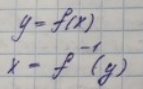 y = f(x)
x = f⁻¹(y)